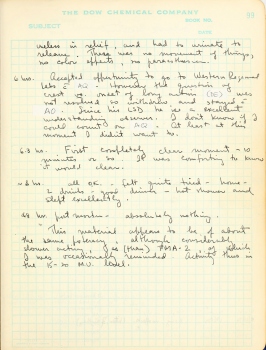 THE DOW CHEMICAL COMPANY
99
SUBJECT
DATE
useless in relief, and had to urinate to
release. There was no movement of things,
no color effects, no paresthesia.
6 hrs. Accepted opportunity to go to Western Reserved
lets = AG. However the question of
crest or onset of long action (DE) was
not resolved so withdrew and stayed =
AO. Since his LSD he is a excellent
understanding observer. I don't know if I
could count on AG. At least at this
moment I didn't want to.
6.3 hrs. First completely clear moment - 10
minutes or so. It was comforting to know
it would clear.
8 hrs. all OK. Felt quite tired - home -
2 drinks - good drinks - hot shower and
slept excellently.
48 hrs. post mortem - absolutely nothing.
"This material appears to be of about
the same potency, although considerably
slower acting, as (than) TMA-2, of which
I was occasionally reminded. Activity thus in
the 15-20 M.U. level.